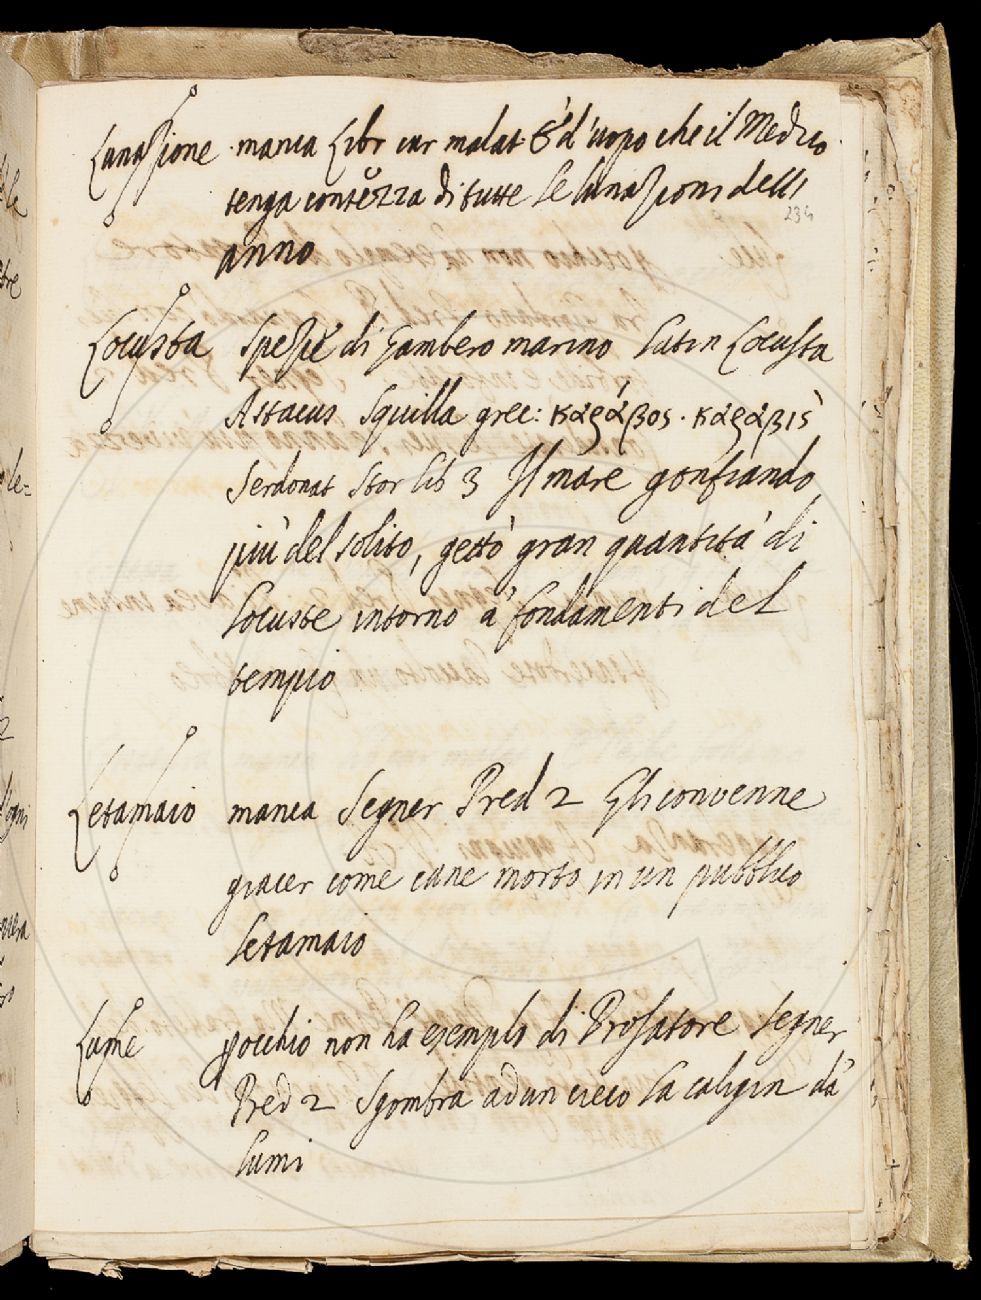 Lunazione manca Libr cur malat È d'uopo che il Medico
tenga contezza di tutte le lunazioni dell
234
anno
Locusta Spezie di Gambero marino Latin Locusta
Astacus Squilla grec: κάράβος · κάράβις
Serdonat Stor lib 3 Il mare gonfiando
più del solito, gettò gran quantità di
locuste intorno a' fondamenti del
tempio
Letamaio manca Segner Pred 2 Gli convenne
giacer come cane morto in un pubblico
letamaio
Lume p occhio non ha esemplo di Prosatore Segner
Pred 2 Sgombra ad un cieco la caligin dà
lumi